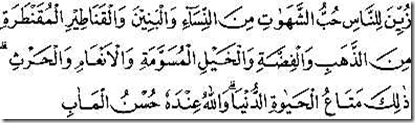 زُيِّنَ لِلنَّاسِ حُبُّ الشَّهَوٰتِ مِنَ النِّسَاۤءِ وَالْبَنِيْنَ وَالْقَنَاطِيْرِ الْمُقَنْطَرَةِ
مِنَ الذَّهَبِ وَالْفِضَّةِ وَالْخَيْلِ الْمُسَوَّمَةِ وَالْاَنْعَامِ وَالْحَرْثِۗ
ذٰلِكَ مَتَاعُ الْحَيٰوةِ الدُّنْيَاۗ وَاللّٰهُ عِنْدَهٗ حُسْنُ الْمَاٰبِ